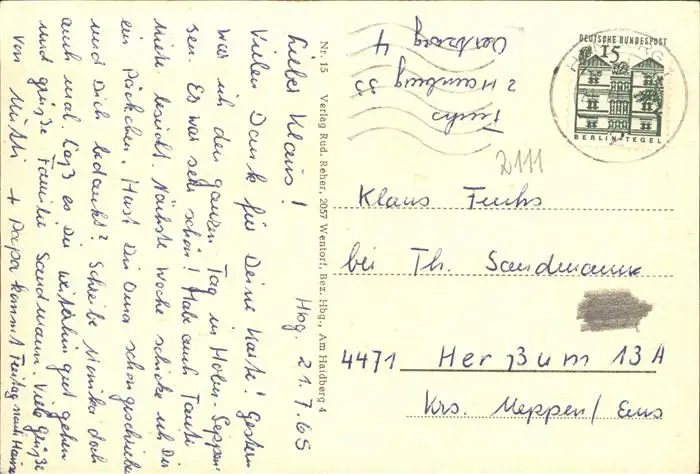 Hbg. 21.7.65
Lieber Klaus!
Vielen Dank für Deine Karte! Gestern
war ich den ganzen Tag in Hohen-Seppen
sen. Es war sehr schön! Habe auch Tante
Mieke besucht. Nächste Woche schicke ich Dir
ein Päckchen. Hast Du Oma schon geschrieben
und Dich bedankt? Schreibe Monika doch
auch mal. Laß es Dir weiterhin gut gehen
und grüße Familie Sandmann. Viele Grüße
von Mutti + Papa kommt Freitag nach Hause
Nr. 15 Verlag Rud. Reher, 2057 Wentorf, Bez. Hbg., Am Haidberg 4
Fuchs
2 Hamburg 33
4
DEUTSCHE BUNDESPOST
15
BERLIN-TEGEL
2111
Klaus Fuchs
bei Th. Sandmann
4471 Herßum 13A
Krs. Meppen/Ems